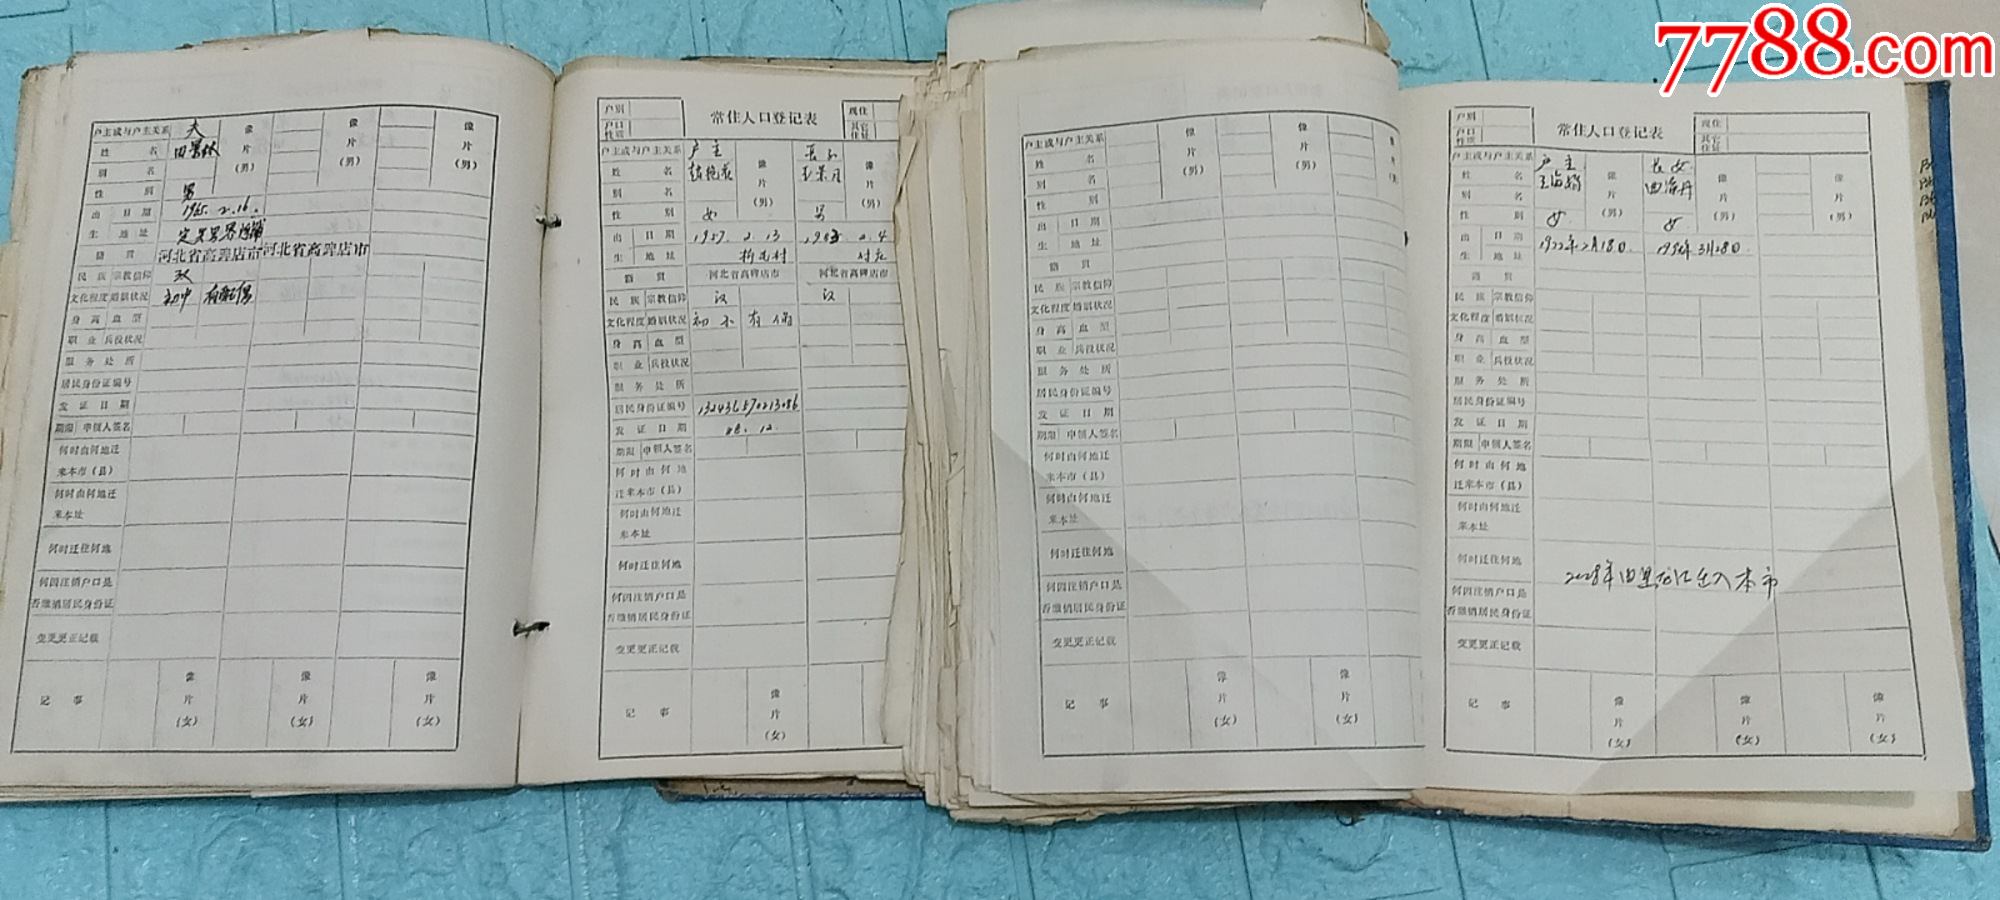 7788.com
户主或与户主关系 夫
姓 名
别 名
性 别 男
出 日期 1965.2.16.
生 地址
籍 贯 河北省高碑店市 河北省高碑店市
民族 宗教信仰 汉
文化程度 婚姻状况 初中 有配偶
身高 血型
职业 兵役状况
服务处所
居民身份证编号
发证日期
期限 申领人签名
何时由何地迁
来本市（县）
何时由何地迁
来本址
何时迁往何地
何因注销户口是
否缴销居民身份证
变更更正记载
记 事
像片（男） 像片（男） 像片（男）
像片（女） 像片（女） 像片（女）
户别
户口性质
常住人口登记表
现住
其它住址
户主或与户主关系 户主 长子
姓 名
别 名
性 别 女 男
出 日期 2.13 2.4
生 地址
籍 贯 河北省高碑店市 河北省高碑店市
民族 宗教信仰 汉 汉
文化程度 婚姻状况
身高 血型
职业 兵役状况
服务处所
居民身份证编号
发证日期
期限 申领人签名
何时由何地
迁来本市（县）
何时由何地迁
来本址
何时迁往何地
何因注销户口是
否缴销居民身份证
变更更正记载
记 事
像片（男） 像片（男）
像片（女）
户主或与户主关系
姓 名
别 名
性 别
出 日期
生 地址
籍 贯
民族 宗教信仰
文化程度 婚姻状况
身高 血型
职业 兵役状况
服务处所
居民身份证编号
发证日期
期限 申领人签名
何时由何地迁
来本市（县）
何时由何地迁
来本址
何时迁往何地
何因注销户口是
否缴销居民身份证
变更更正记载
记 事
像片（男） 像片（男）
像片（女） 像片（女）
户别
户口性质
常住人口登记表
现住
其它住址
户主或与户主关系 户主 长女
姓 名 田海丹
别 名
性 别 女 女
出 日期 3月28日
生 地址
籍 贯
民族 宗教信仰
文化程度 婚姻状况
身高 血型
职业 兵役状况
服务处所
居民身份证编号
发证日期
期限 申领人签名
何时由何地
迁来本市（县）
何时由何地迁
来本址
何时迁往何地
何因注销户口是
否缴销居民身份证
变更更正记载
记 事
像片（男） 像片（男） 像片（男）
像片（女） 像片（女） 像片（女）